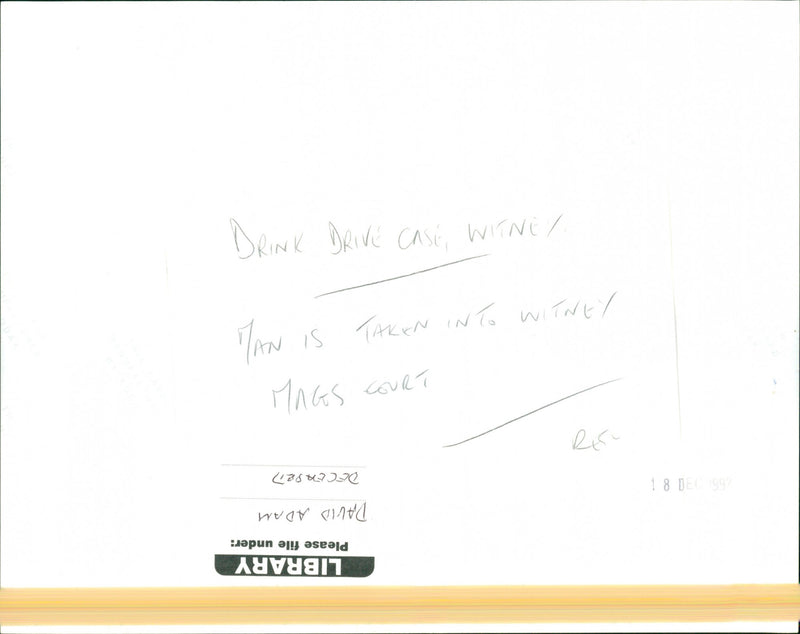 DRINK DRIVE CASE, WITNEY
MAN IS TAKEN INTO WITNEY
MAGS COURT
18 DEC 1992
LIBRARY
Please file under:
DAVID ADAM
DECEASED